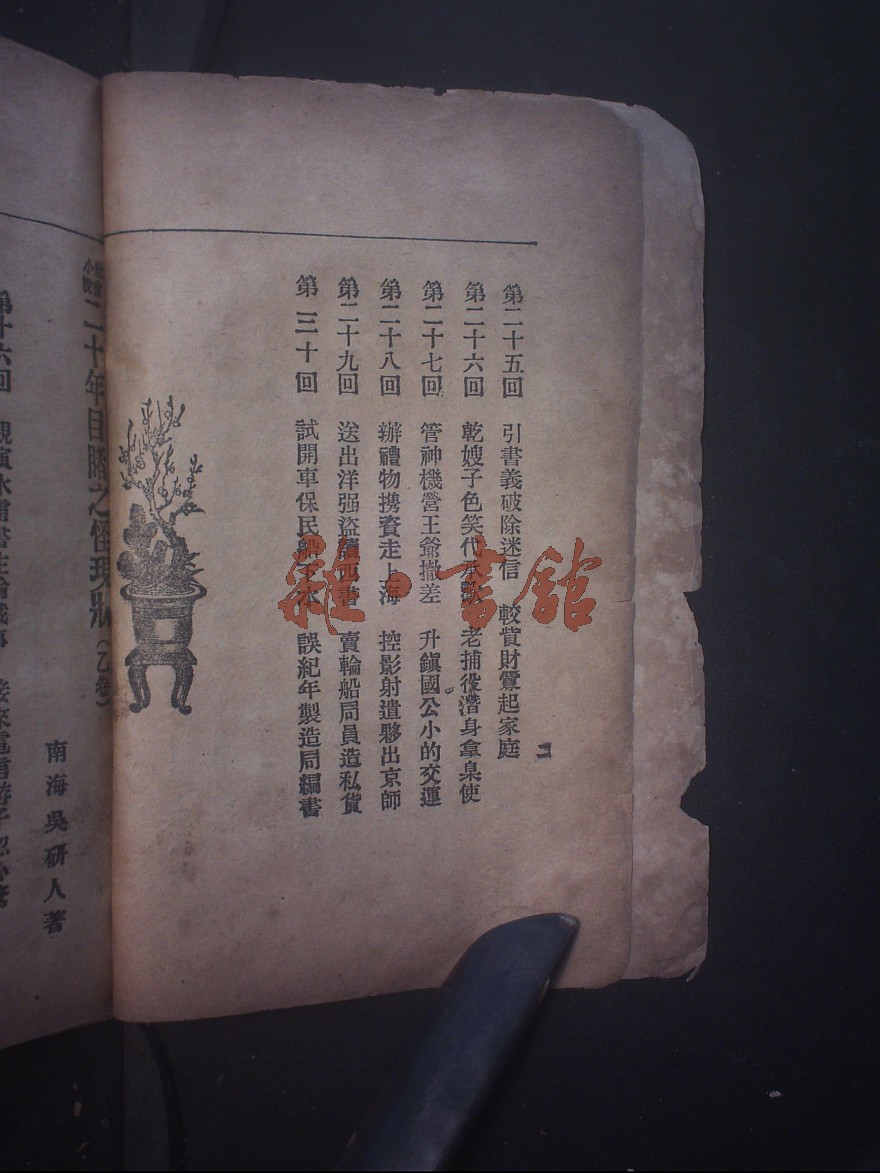 第二十五回 引書義破除迷信 較貲財釁起家庭
第二十六回 乾嫂子色笑代承歡 老捕役潛身拿臬使
第二十七回 管神機營王爺撤差 升鎮國公小的交運
第二十八回 辦禮物携資走上海 控影射遣夥出京師
第二十九回 送出洋强盜讀西書 賣輪船局員造私貨
第三十回 試開車保民船下水 誤紀年製造局編書
二
雜·書館
小說
二十年目睹之怪現狀(乙卷)
南海吳研人著
第十六回 觀演水雷書生論戰事 接來電信游子忽心驚